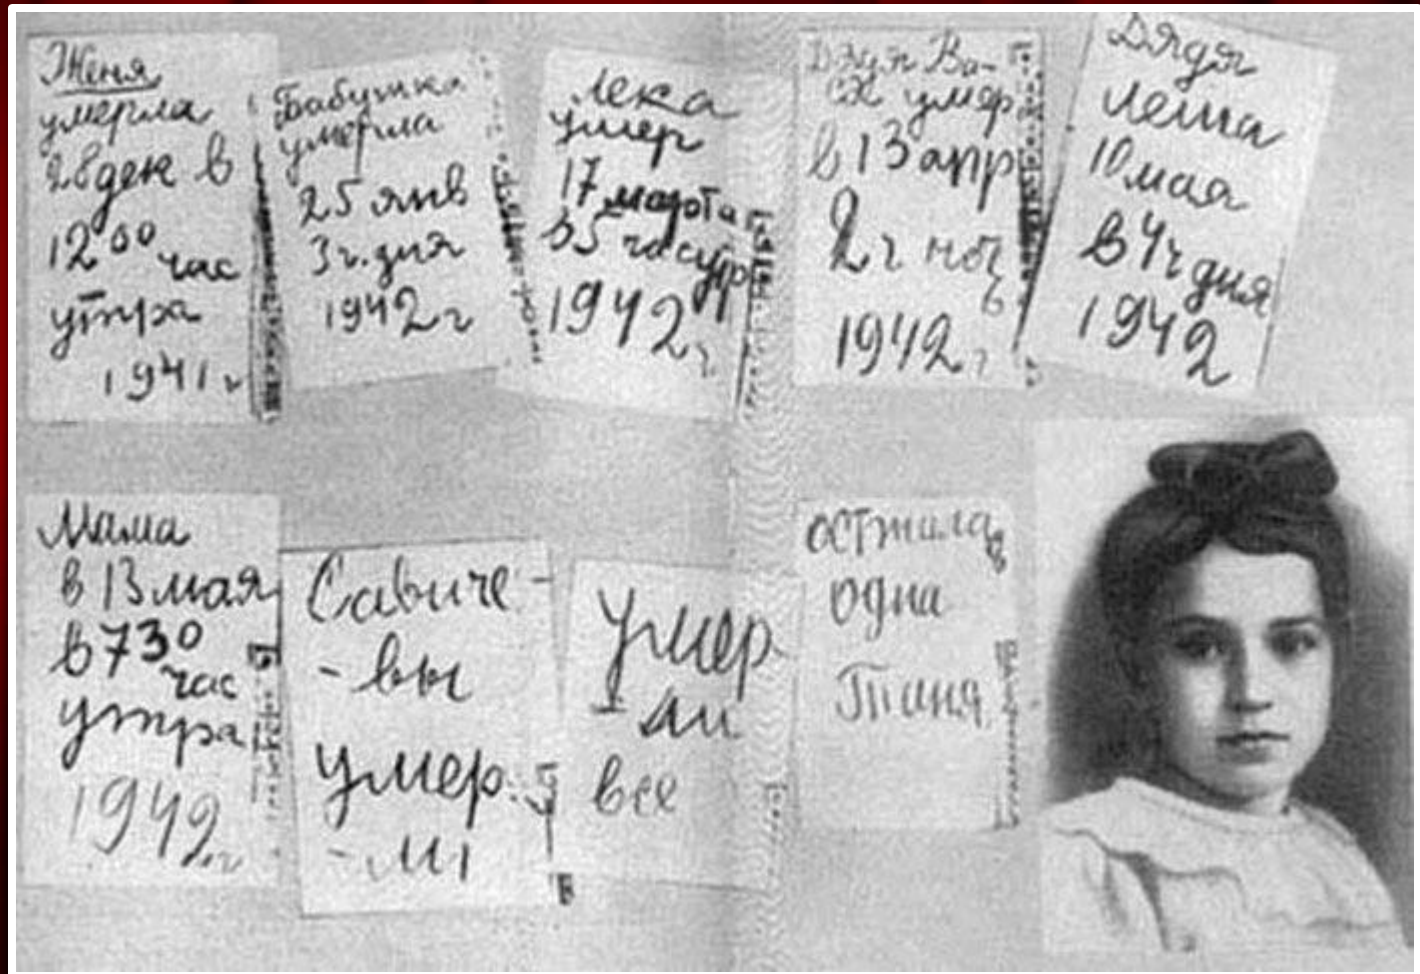 Женя
умерла
28 дек в
12 00 час
утра
1941 г
Бабушка
умерла
25 янв
3 ч. дня
1942 г
Лека
умер
17 марта
в 5 час утр
1942 г.
Дядя Ва-
ся умер
в 13 апр
2 ч ноч
ь
1942 г
Дядя
Леша
10 мая
в 4 ч дня
1942
Мама
в 13 мая
в 7 30
час
утра
1942 г
Савиче-
-вы
умер
-ли
Умер
-ли
все
одна
Таня